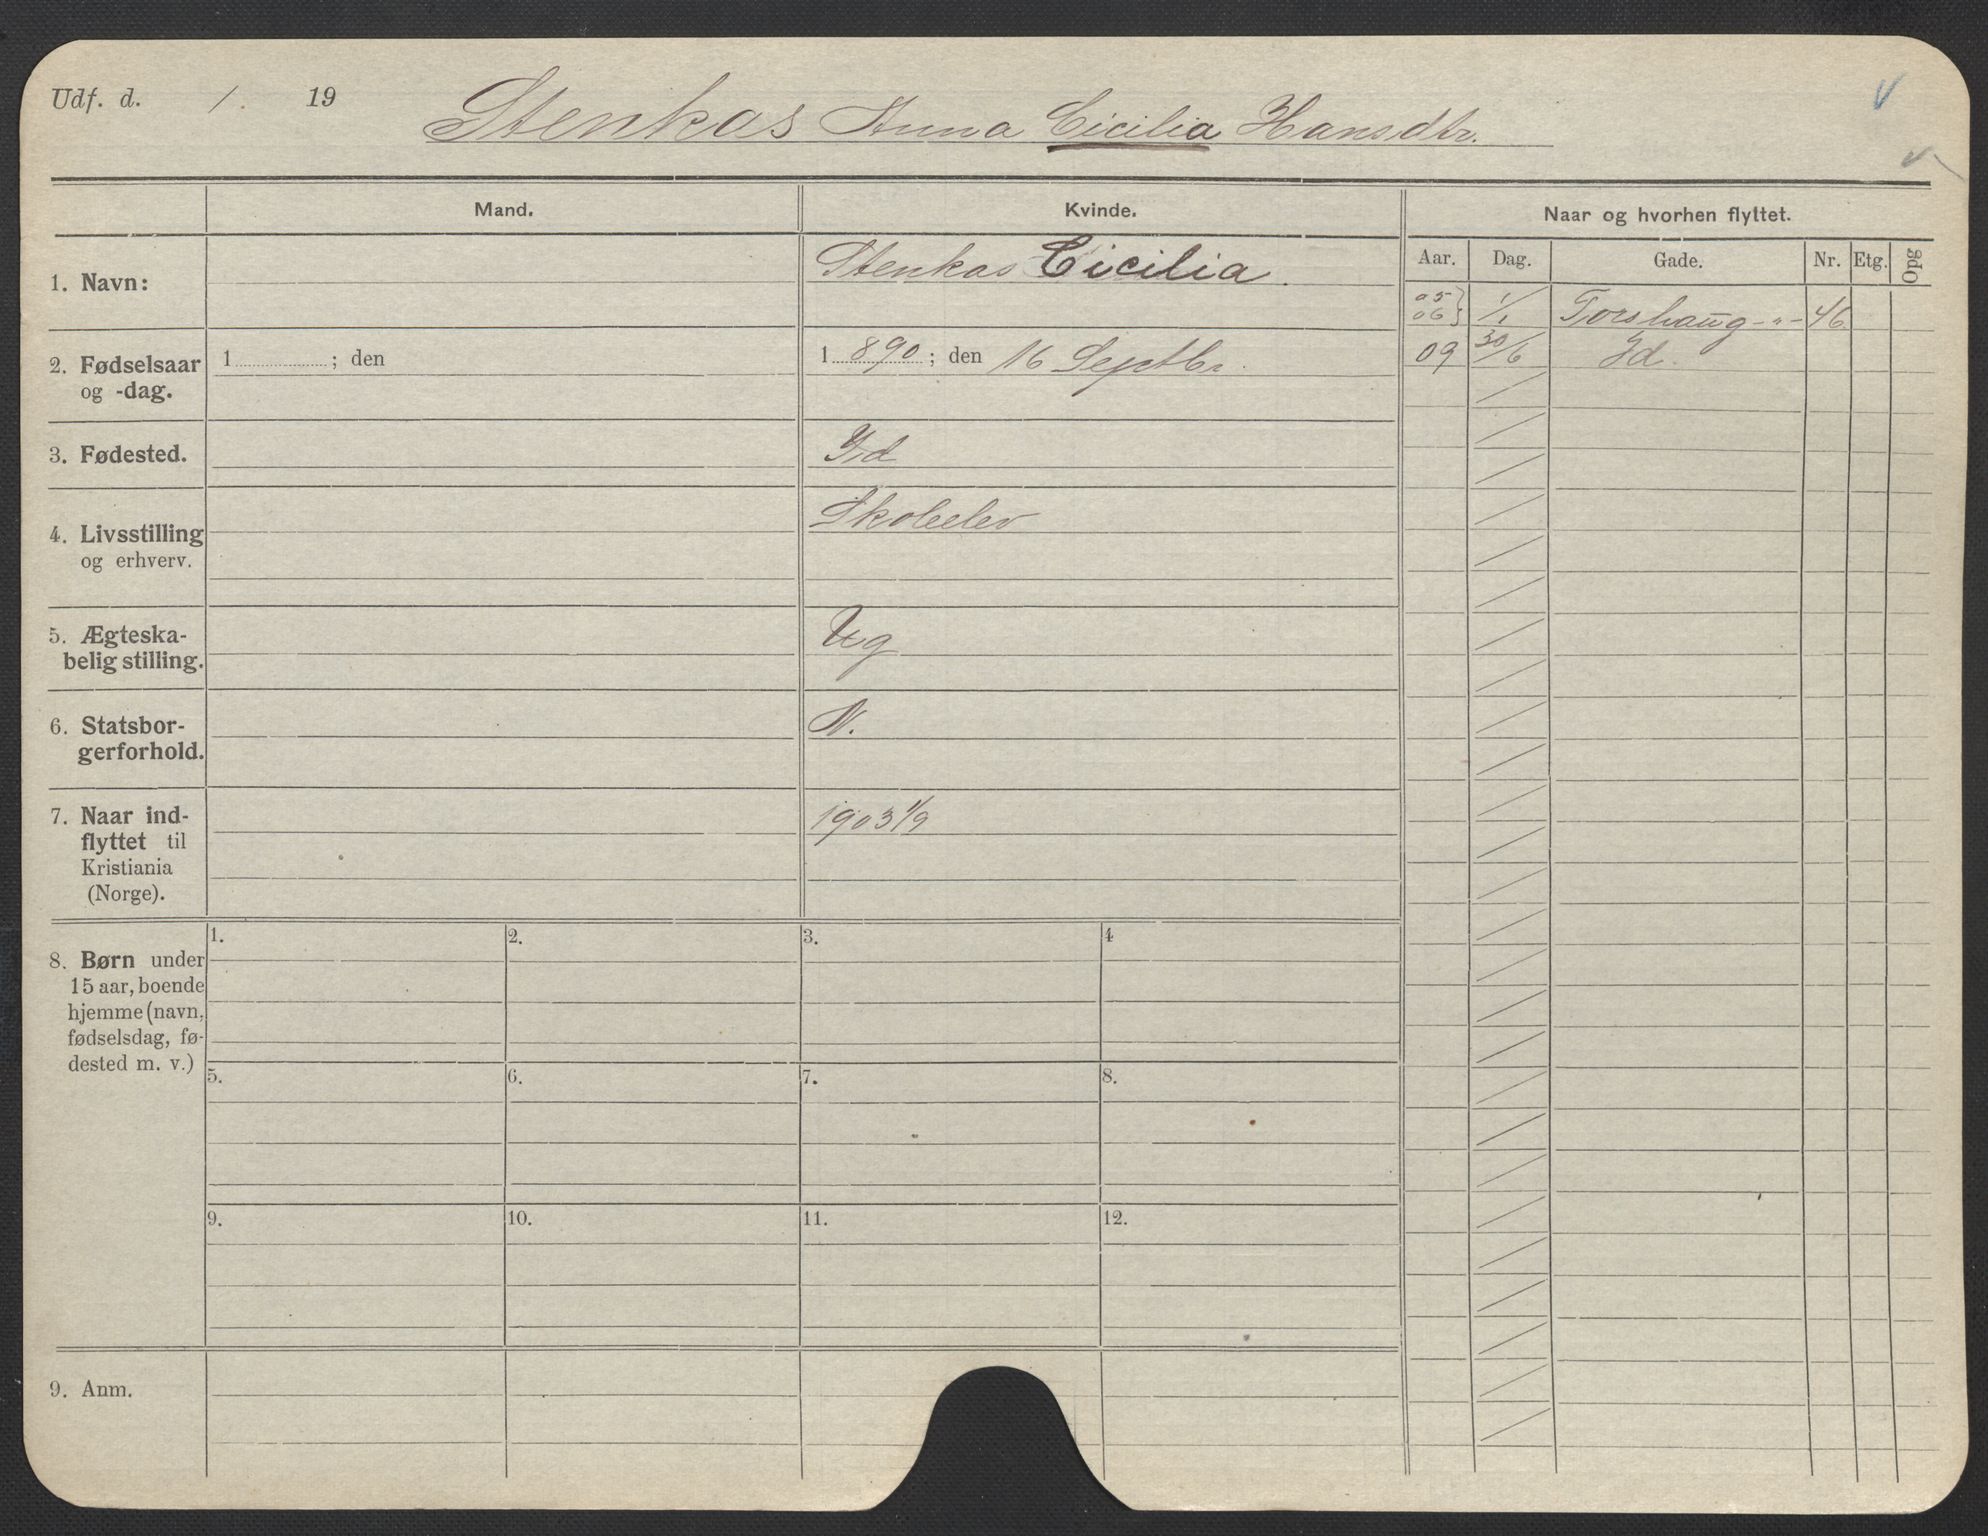 Udf. d. / . 19
Stenkas Anna Cicilia Hansdtr.
Mand. Kvinde. Naar og hvorhen flyttet.
Aar. Dag. Gade. Nr. Etg. Opg
1. Navn: Stenkas Cicilia.
05 06 } 1/1 Torshaug -"- 46
2. Fødselsaar og -dag. 1 ; den 1 890 ; den 16 Septbr.
09 30/6 Id.
3. Fødested. Id
4. Livsstilling og erhverv. Skoleelev
5. Ægteska-
belig stilling. Ug
6. Statsbor-
gerforhold. N.
7. Naar ind-
flyttet til
Kristiania
(Norge). 1903 1/9
8. Børn under
15 aar, boende
hjemme (navn,
fødselsdag, fø-
dested m. v.)
1. 2. 3. 4
5. 6. 7. 8.
9. 10. 11. 12.
9. Anm.